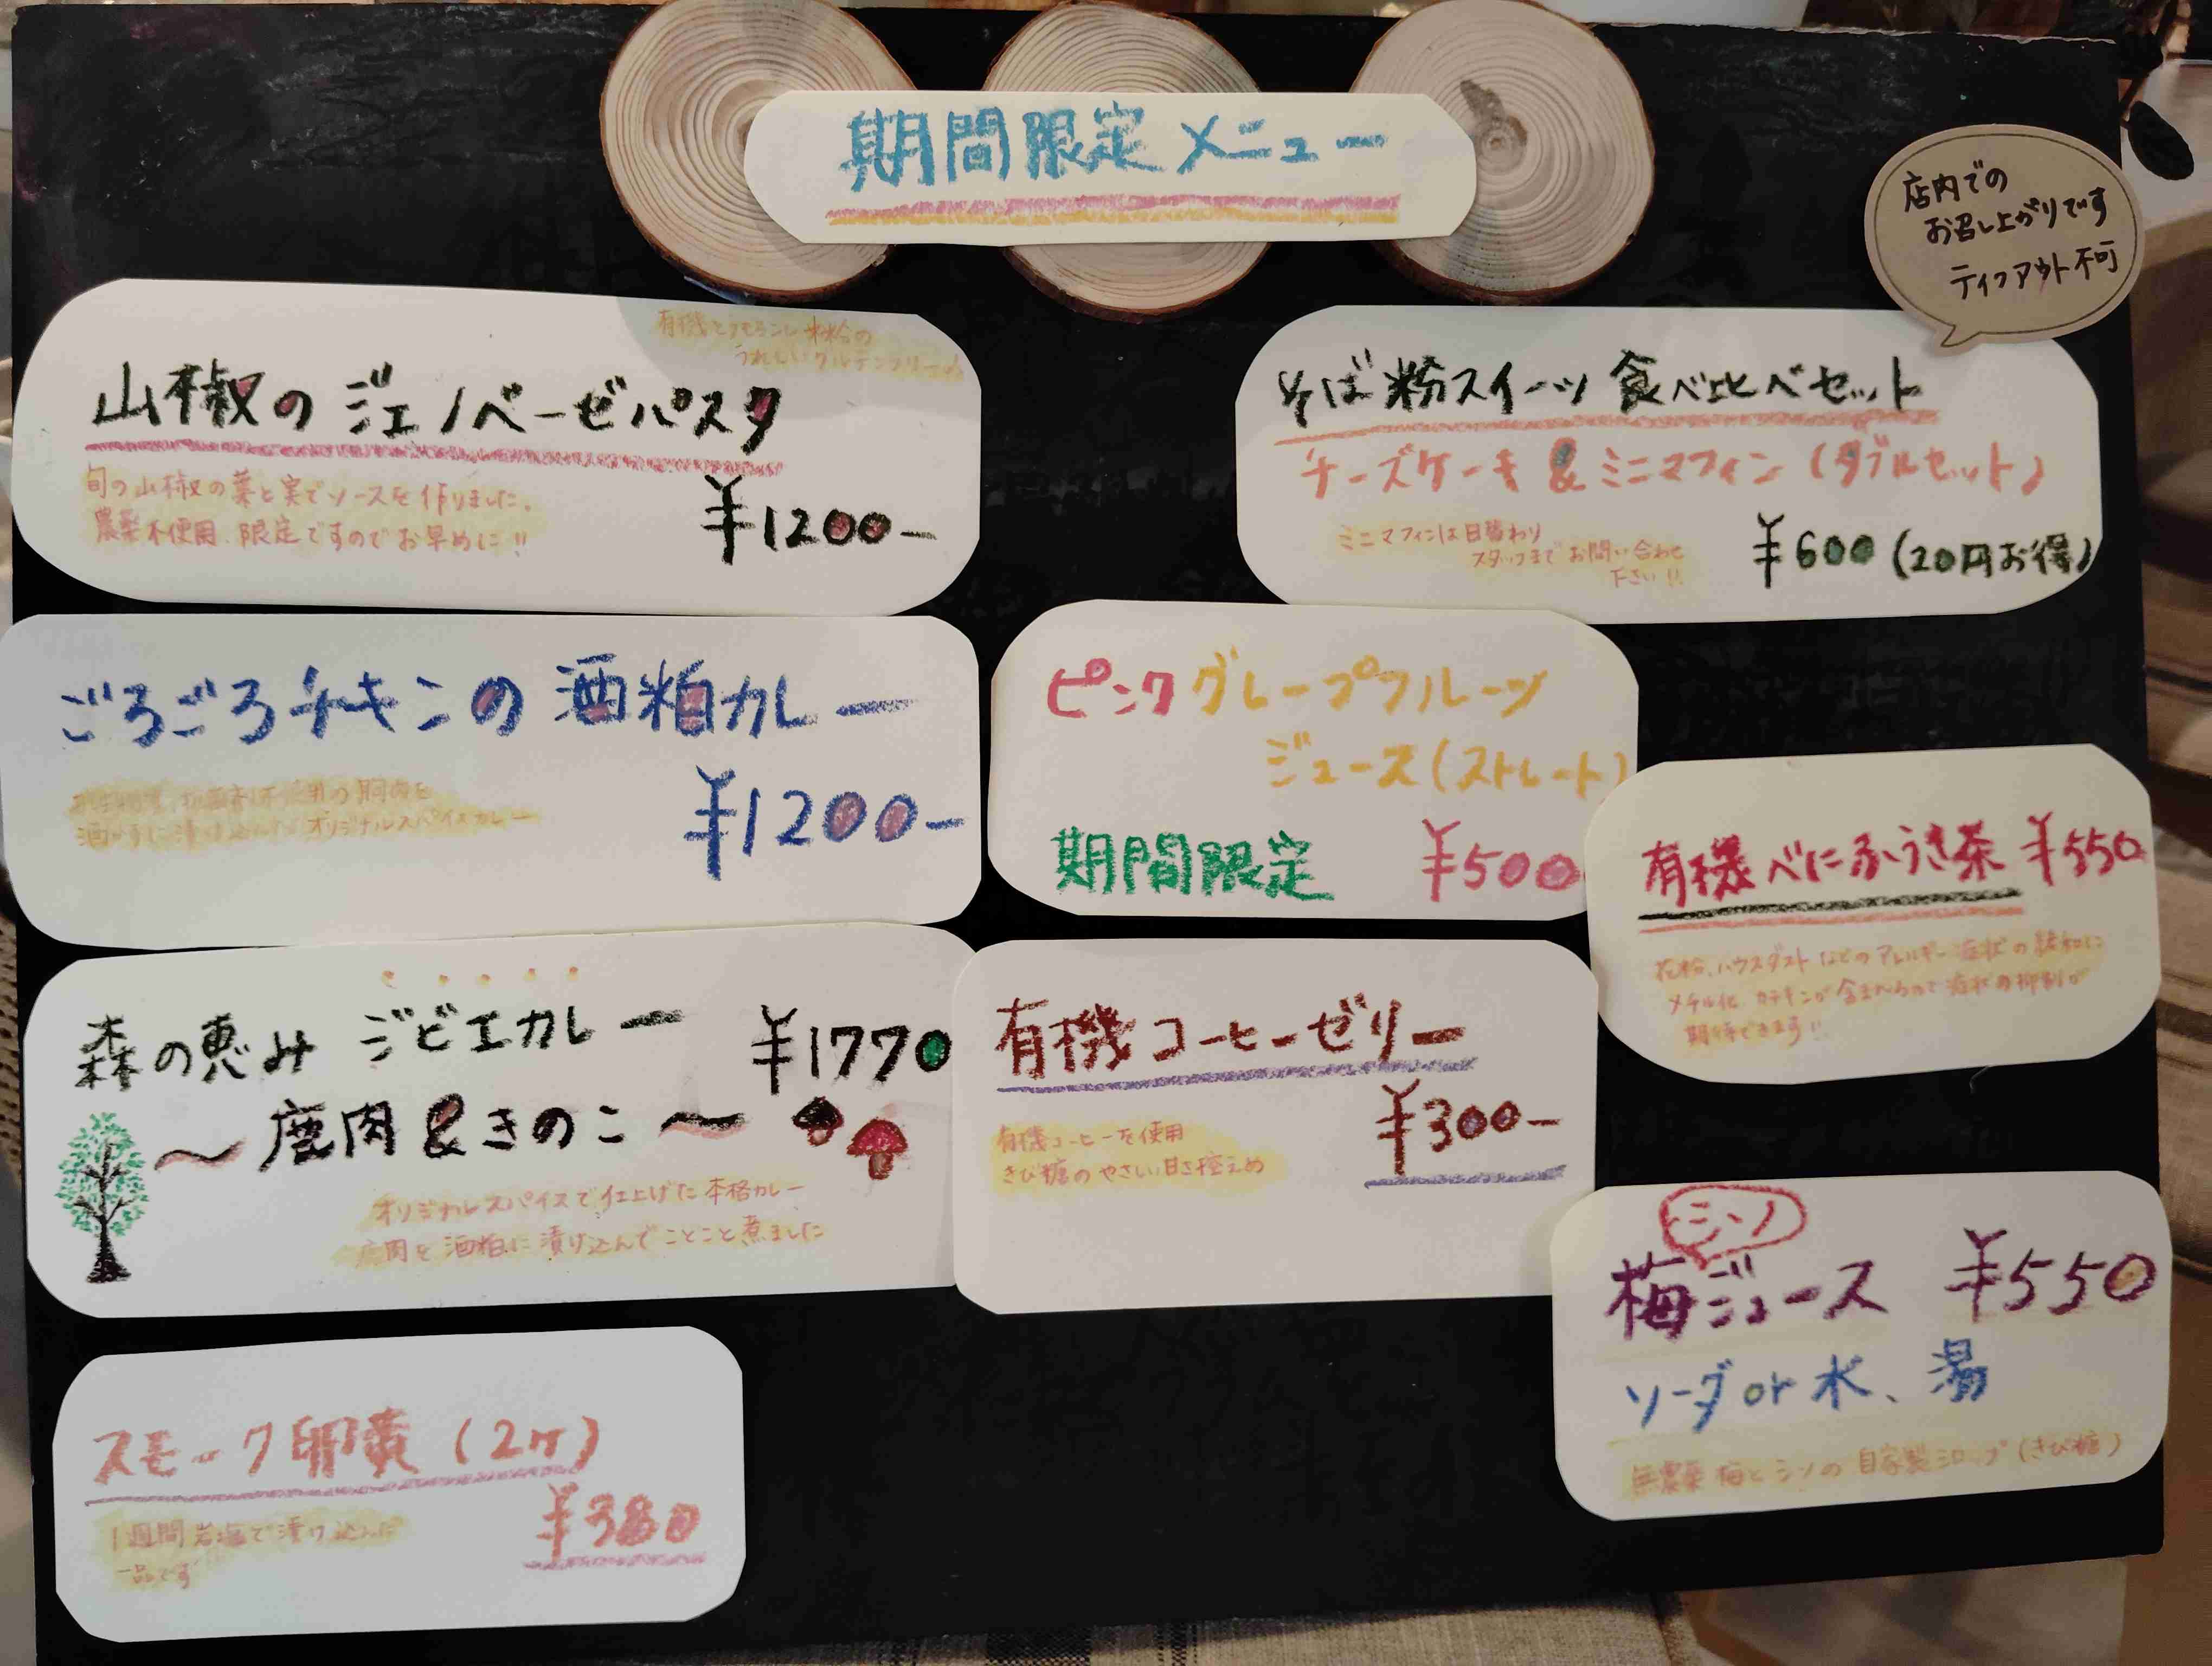 期間限定メニュー
店内での
お召し上がりです
テイクアウト不可
有機とうもろこし米粉の
うれしいグルテンフリー
山椒のジェノベーゼパスタ
旬の山椒の葉と実でソースを作りました。
農薬不使用、限定ですのでお早めに!!
¥1200-
そば粉スイーツ食べ比べセット
チーズケーキ&ミニマフィン(ダブルセット)
ミニマフィンは日替わり
スタッフまでお問い合わせ
下さい!!
¥600(20円お得)
ごろごろチキンの酒粕カレー
の胸肉を
酒かすに漬け込んだオリジナルスパイスカレー
¥1200-
ピンクグレープフルーツ
ジュース(ストレート)
期間限定 ¥500
有機べにふうき茶 ¥550
花粉、ハウスダストなどのアレルギー症状の緩和に
メチル化カテキンが含まれるので症状の抑制が
期待できます!!
森の恵み ジビエカレー ¥1770
〜鹿肉&きのこ〜
オリジナルスパイスで仕上げた本格カレー
鹿肉を酒粕に漬け込んでことこと煮ました
有機コーヒーゼリー
¥300-
有機コーヒーを使用
きび糖のやさしい甘さ控えめ
シソ
梅ジュース ¥550
ソーダor水、湯
無農薬梅とシソの自家製シロップ(きび糖)
スモーク卵黄(2ケ)
¥380
1週間岩塩で漬け込んだ
一品です